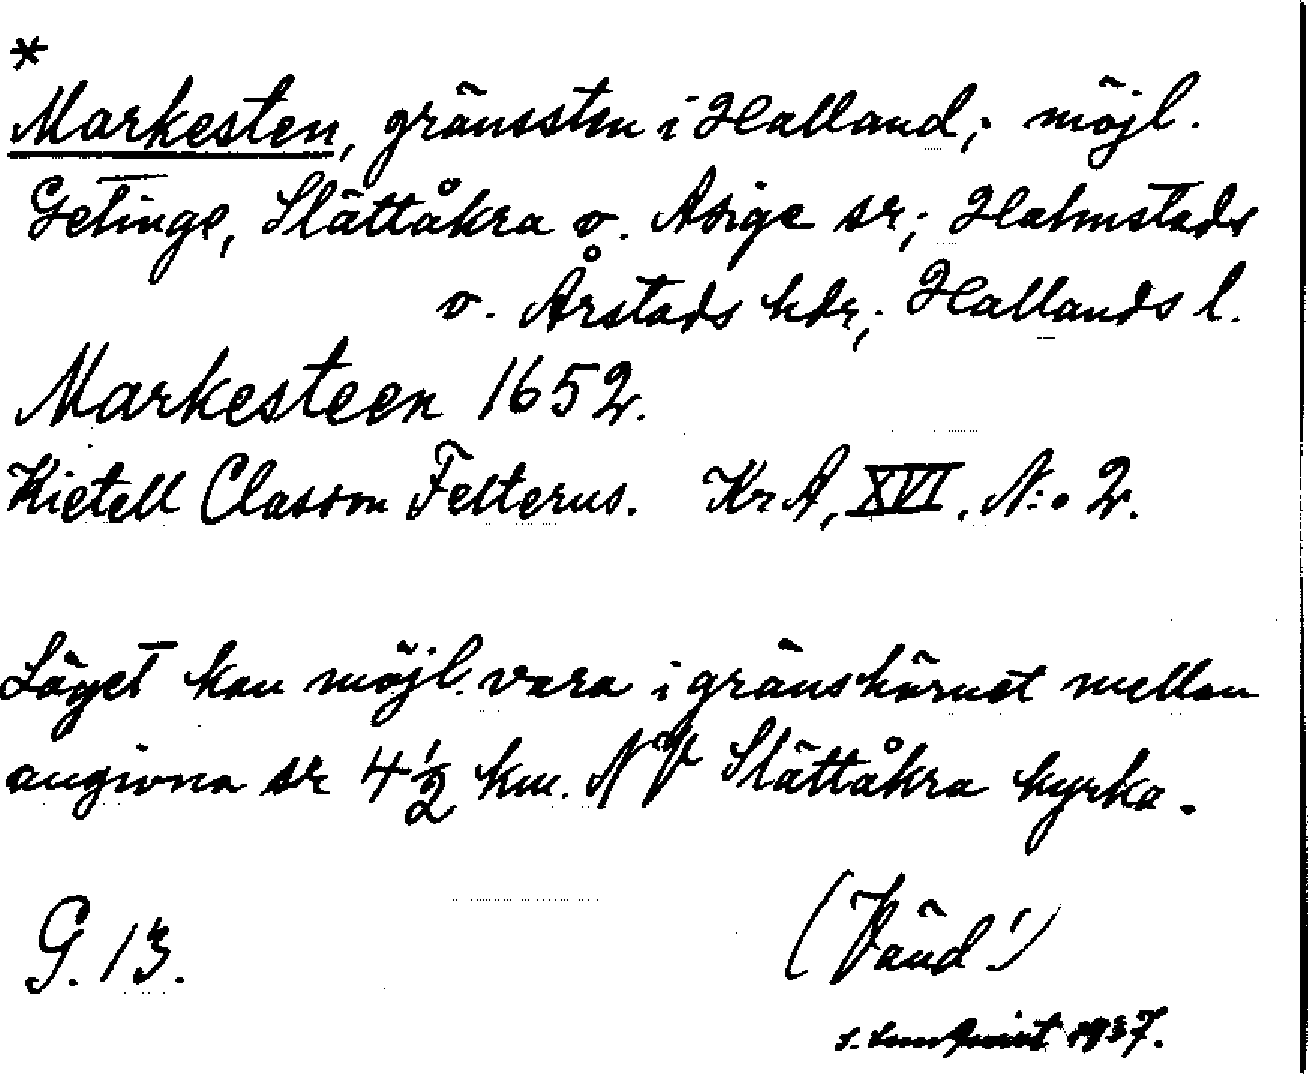 *
Markesten, gränssten i Halland; möjl.
Getinge, Slättåkra o. Asige sr; Halmstads
o. Årstads hdr; Hallands l.
Markesteen 1652.
Kietell Classon Felterus. KrA, XVI. N:o 2.
Läget kan möjl. vara i gränshörnet mellan
angivna sr 4 1/2 km. NV Slättåkra kyrka.
G. 13. (Vänd!)
1937.